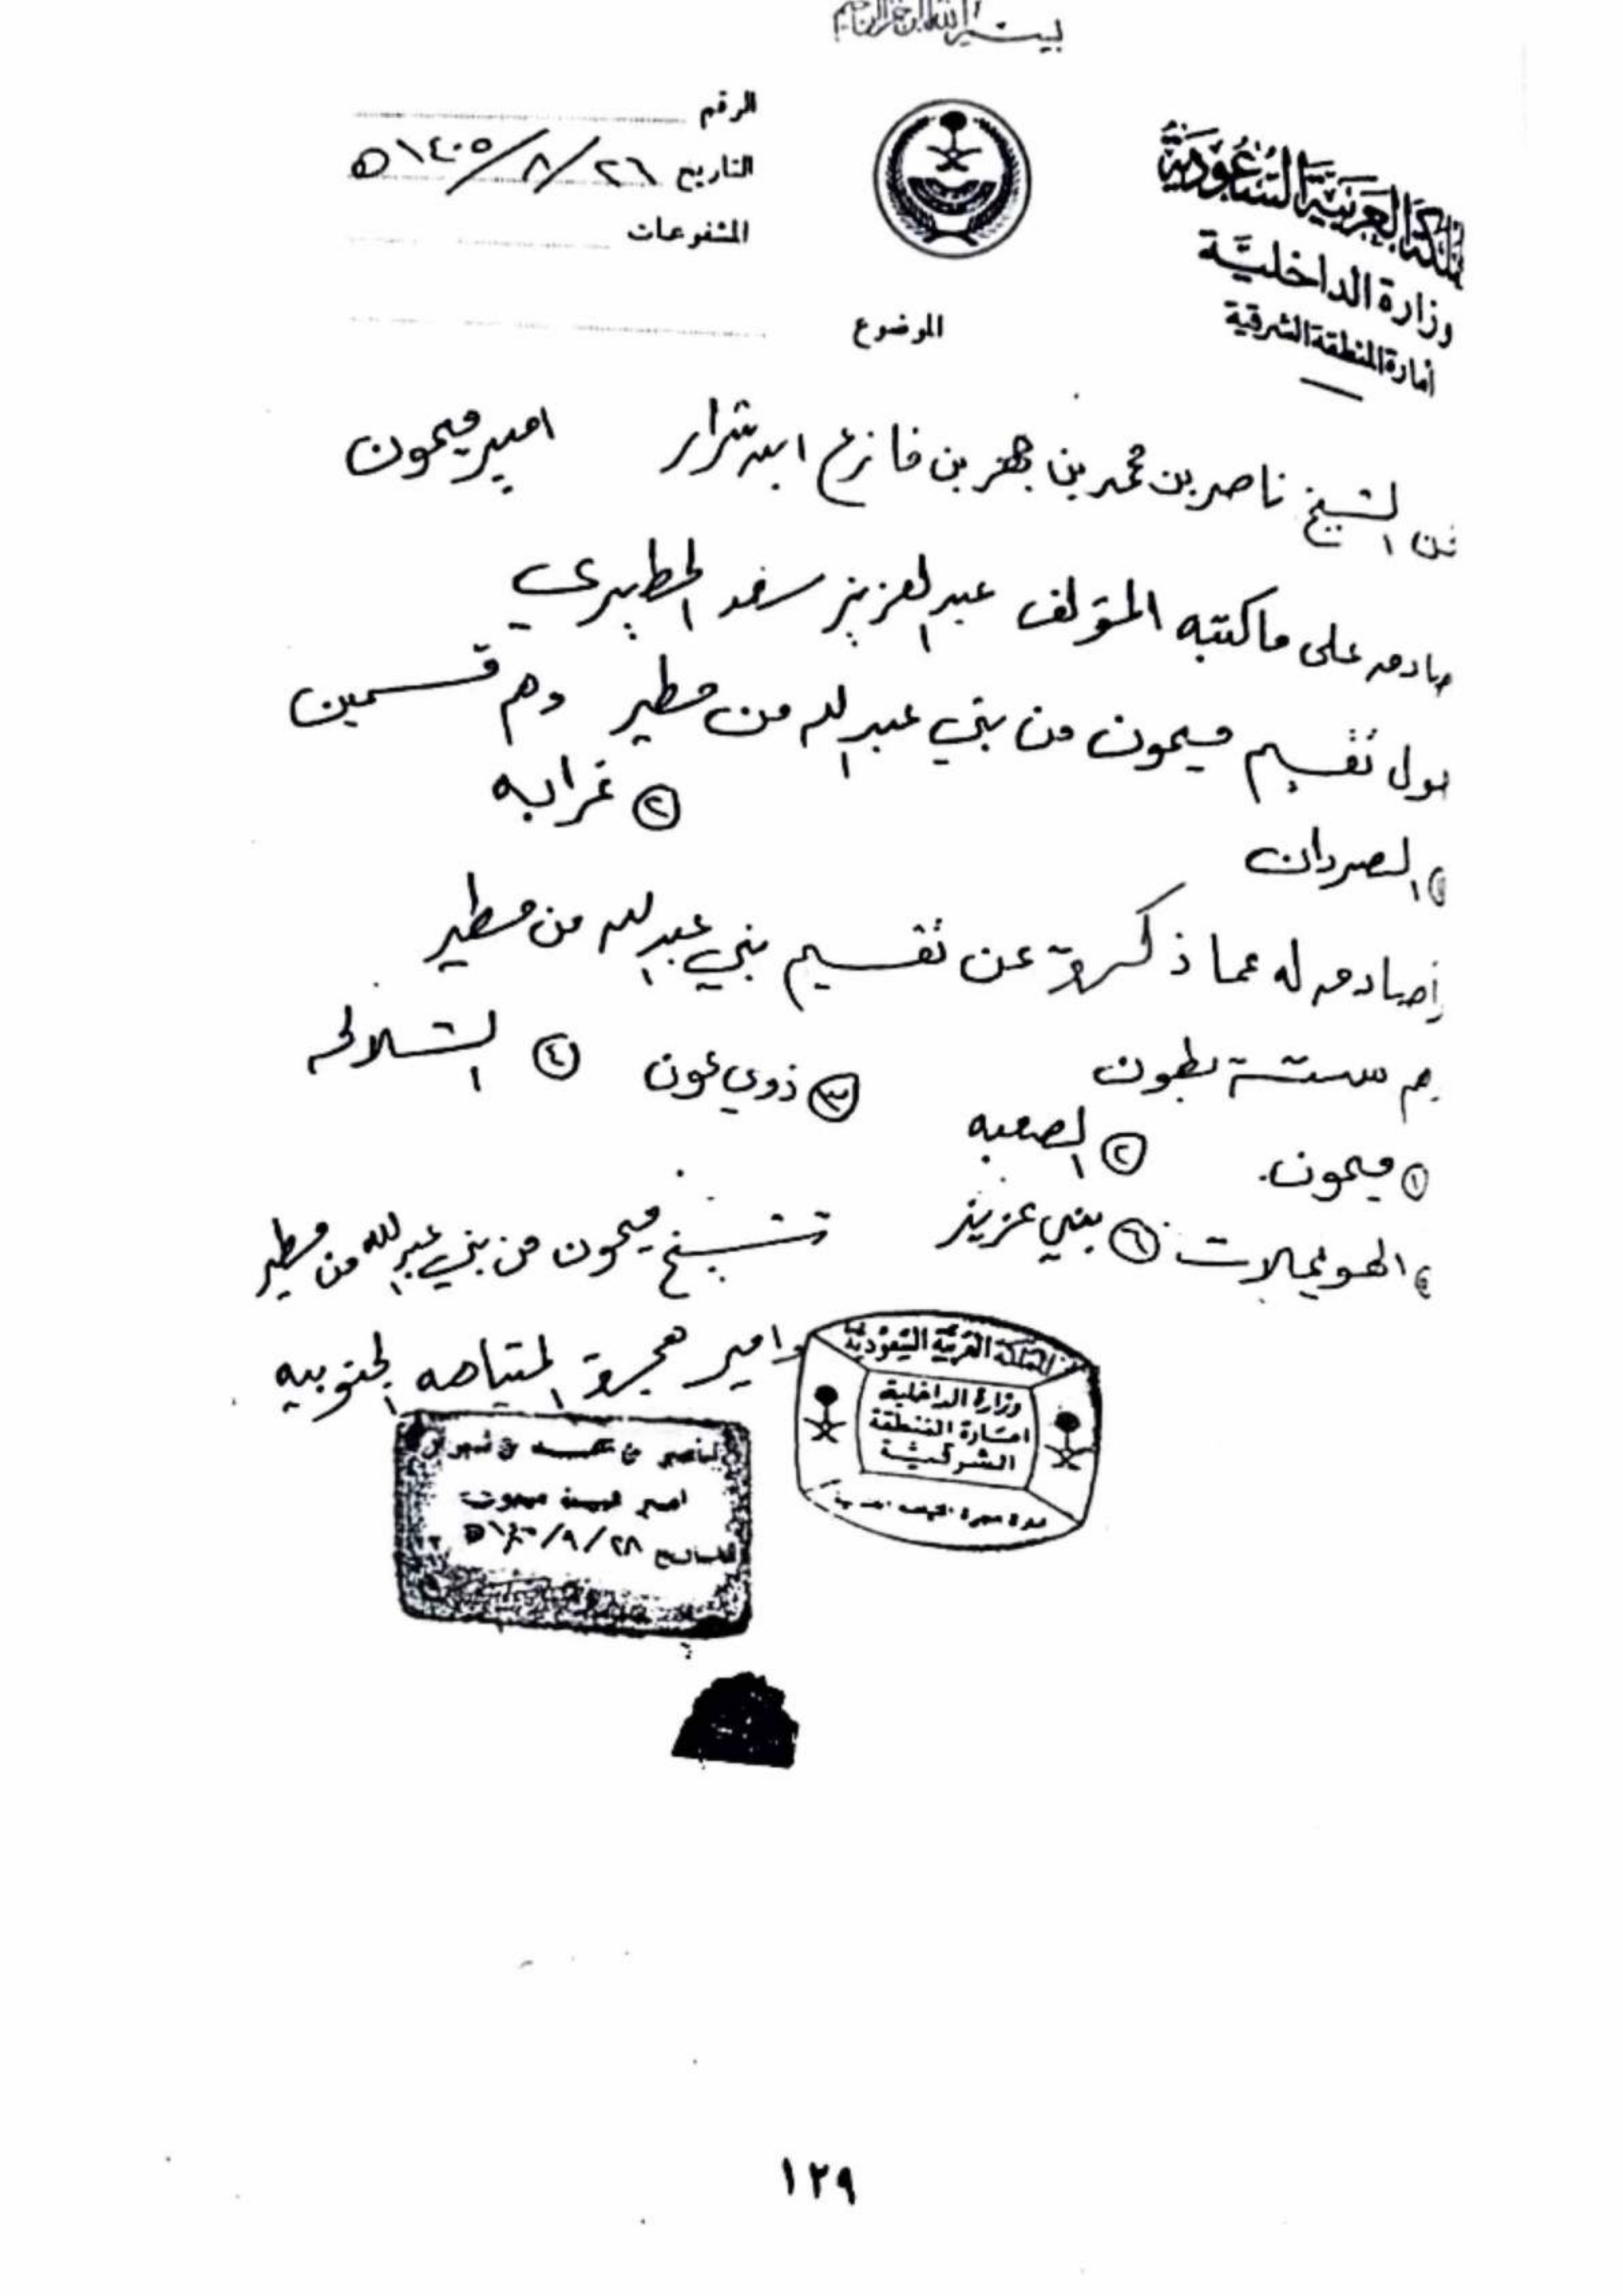 بسم الله الرحمن الرحيم
المملكة العربية السعودية
وزارة الداخلية
أمارة المنطقة الشرقية
الرقم
التاريخ ٢٦ / ٨ / ١٤٠٥ هـ
المشفوعات
الموضوع
الشيخ ناصر بن محمد بن جهز بن فازع ابن شرار امير ميمون
على ماكتبه المؤلف عبدالعزيز سعد المطيري
تقسيم ميمون من بني عبدالله من مطير وهم قسمين
الصردان ② غرابه
له عما ذكرة عن تقسيم بني عبدالله من مطير
ستة بطون
① ميمون ② الصعبه ③ ذوي عون ④ الشلالحه
الهويملات ⑥ بني عزيز
شيخ ميمون من بني عبدالله من مطير
وامير هجرة المتياهه الجنوبيه
المملكة العربية السعودية
وزارة الداخلية
امارة المنطقة
الشرقية
ناصر بن محمد بن
امير
التاريخ ٢٨ / ٩ /
١٢٩